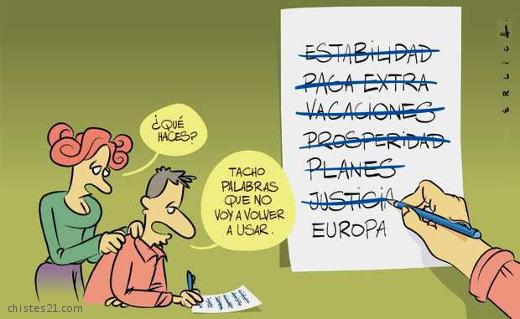 ¿QUÉ
HACES?
TACHO
PALABRAS
QUE NO
VOY A VOLVER
A USAR.
ESTABILIDAD
PAGA EXTRA
VACACIONES
PROSPERIDAD
PLANES
JUSTICIA
EUROPA
ERLICH
chistes21.com